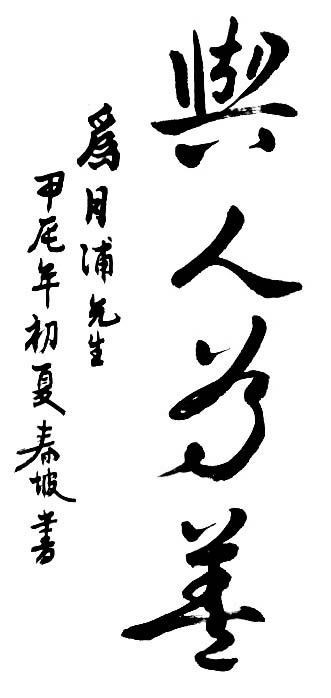 與人为善
爲月浦先生
甲辰年初夏春坡書